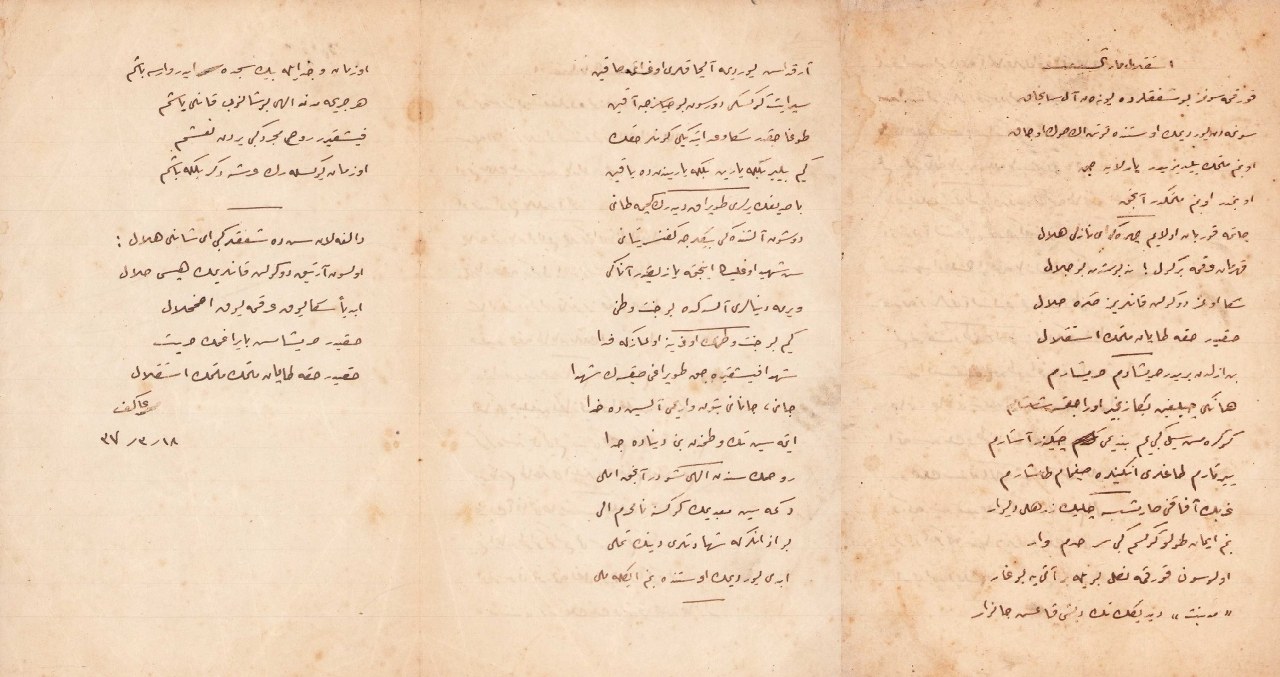 استقلال مارشی
قورقمه سونمز بو شفقلرده یوزن آل سانجاق
سونمه دن یوردیمك اوستنده توتن اك صوك اوجاق
او بنم ملتمك ییلدیزیدر پارلایه جق
او بنمدر او بنم ملتمكدر آنجق
چاتمه قوربان اولایم چهره كی ای نازلی هلال
قهرمان عرقمه بر كول! نه بو شدت بو جلال
سكا اولماز دوكولن قانلریمز صكره حلال
حقیدر حقه طاپان ملتمك استقلال
بن ازلدن بریدر حر یشادم حر یشارم
هانكی چیلغین بكا زنجیر اوراجقمش شاشارم
كوكره مش سیل كبی یم بندیمی چیكنر آشارم
ییرتارم طاغلری انكینلره صیغمام طاشارم
غربك آفاقنی صارمشسه چلیك زرهلی دیوار
بنم ایمان طولو كوكسم كبی سرحدم وار
اولوسون قورقمه نصل بویله بر ایمانی بوغار
«مدنیت» دیدیكك تك دیشی قالمش جاناوار
آرقداش یوردیمه آلچاقلری اوغراتمه صاقین
سپر ایت كوكسكی دورسون بو حیاسزجه آقین
طوغاجقدر سكا وعد ایتدیكی كونلر حقك
كیم بیلیر بلكه یارین بلكه یاریندن ده یاقین
باصدیغك یرلری طوپراق دییه رك كچمه طانی
دوشون آلتنده كی بیكلرجه كفنسز یاتانی
سن شهید اوغلیسك اینجتمه یازیقدر آتاكی
ویرمه دنیالری آلسه كده بو جنت وطنی
كیم بو جنت وطنك اوغرینه اولماز كه فدا
شهدا فیشقیره جق طوپراغی صیقسه ك شهدا
جانی، جانانی بتون واریمی آلسین ده خدا
ایتمه سین تك وطنمدن بنی دنیاده جدا
روحمك سندن الهی شودر آنجق املی
دكمه سین معبدیمك كوكسنه نامحرم الی
بو اذانلر كه شهادتلری دینك تملی
ابدی یوردیمك اوستنده بنم ایكله ملی
او زمان وجد ایله بیك سجده ایدر وارسه طاشم
هر جریحه مدن الهی بوشانوب قانلی یاشم
فیشقیرر روح مجرد كبی یردن نعشم
او زمان یوكسله رك عرشه دكر بلكه باشم
دالغه لان سن ده شفقلر كبی ای شانلی هلال!
اولسون آرتیق دوكولن قانلریمك هپسی حلال
ابدیاً سكا یوق عرقمه یوق اضمحلال
حقیدر حر یشامش بایراغمك حریت
حقیدر حقه طاپان ملتمك استقلال
عاكف
١٨/٣/٣٧